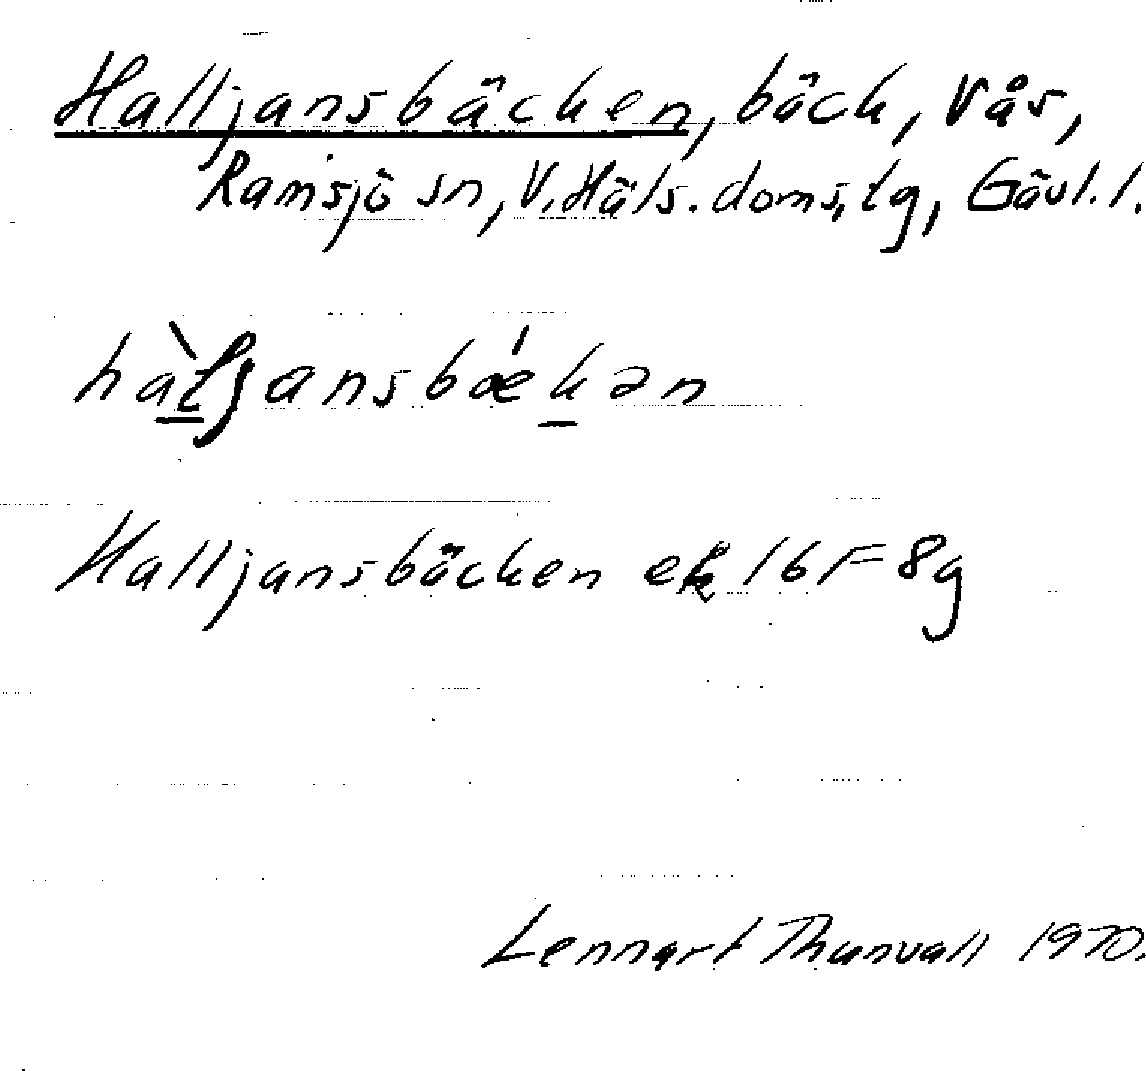 Halljansbäcken, bäck, Vås,
Ramsjö sn, V. Häls. doms.tg, Gävl. l.
Halljansbäcken ek 16F 8g
Lennart Thunvall 1970.